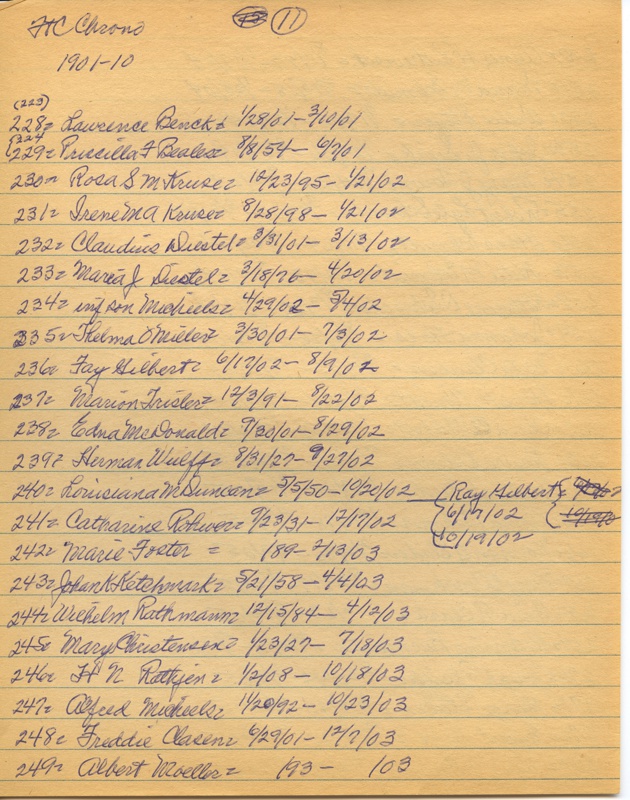 HC Chrono
11
1901-10
(223)
228= Lawrence Benck= 1/28/01- 3/10/01
(224
229= Priscilla F Beales= 8/8/54- 6/7/01
230= Rosa S M Kruse= 12/23/95- 4/21/02
231= Irene M A Kruse= 8/28/98- 4/21/02
232= Claudius Diestel= 3/31/01- 3/13/02
233= Maria J Diestel= 3/18/76- 4/20/02
234= inf son Michels= 4/29/02- 5/4/02
235= Thelma O Mieler= 3/30/01- 7/3/02
236= Fay Gilbert= 6/17/02- 8/9/02
237= Marion Trisler= 12/3/91- 8/22/02
238= Edna McDonald= 9/30/01- 8/29/02
239= Herman Wulff= 8/31/27- 9/27/02
240= Louisiana M Duncan= 5/5/50- 10/20/02 (Ray Gilbert=
241= Catharine Rohwer= 9/23/31- 12/17/02 6/17/02
242= Marie Foster = 189- 2/13/03 10/19/02
243= Johan K Ketchmark= 5/21/58- 4/4/03
244= Wilhelm Rathmann= 12/15/84- 4/12/03
245= Mary Christensen= 1/23/27- 7/18/03
246= H N Rattjen= 1/2/08- 10/18/03
247= Alfred Michels= 11/20/92- 10/23/03
248= Freddie Clasen= 6/29/01- 12/7/03
249= Albert Moeller= /93- /03